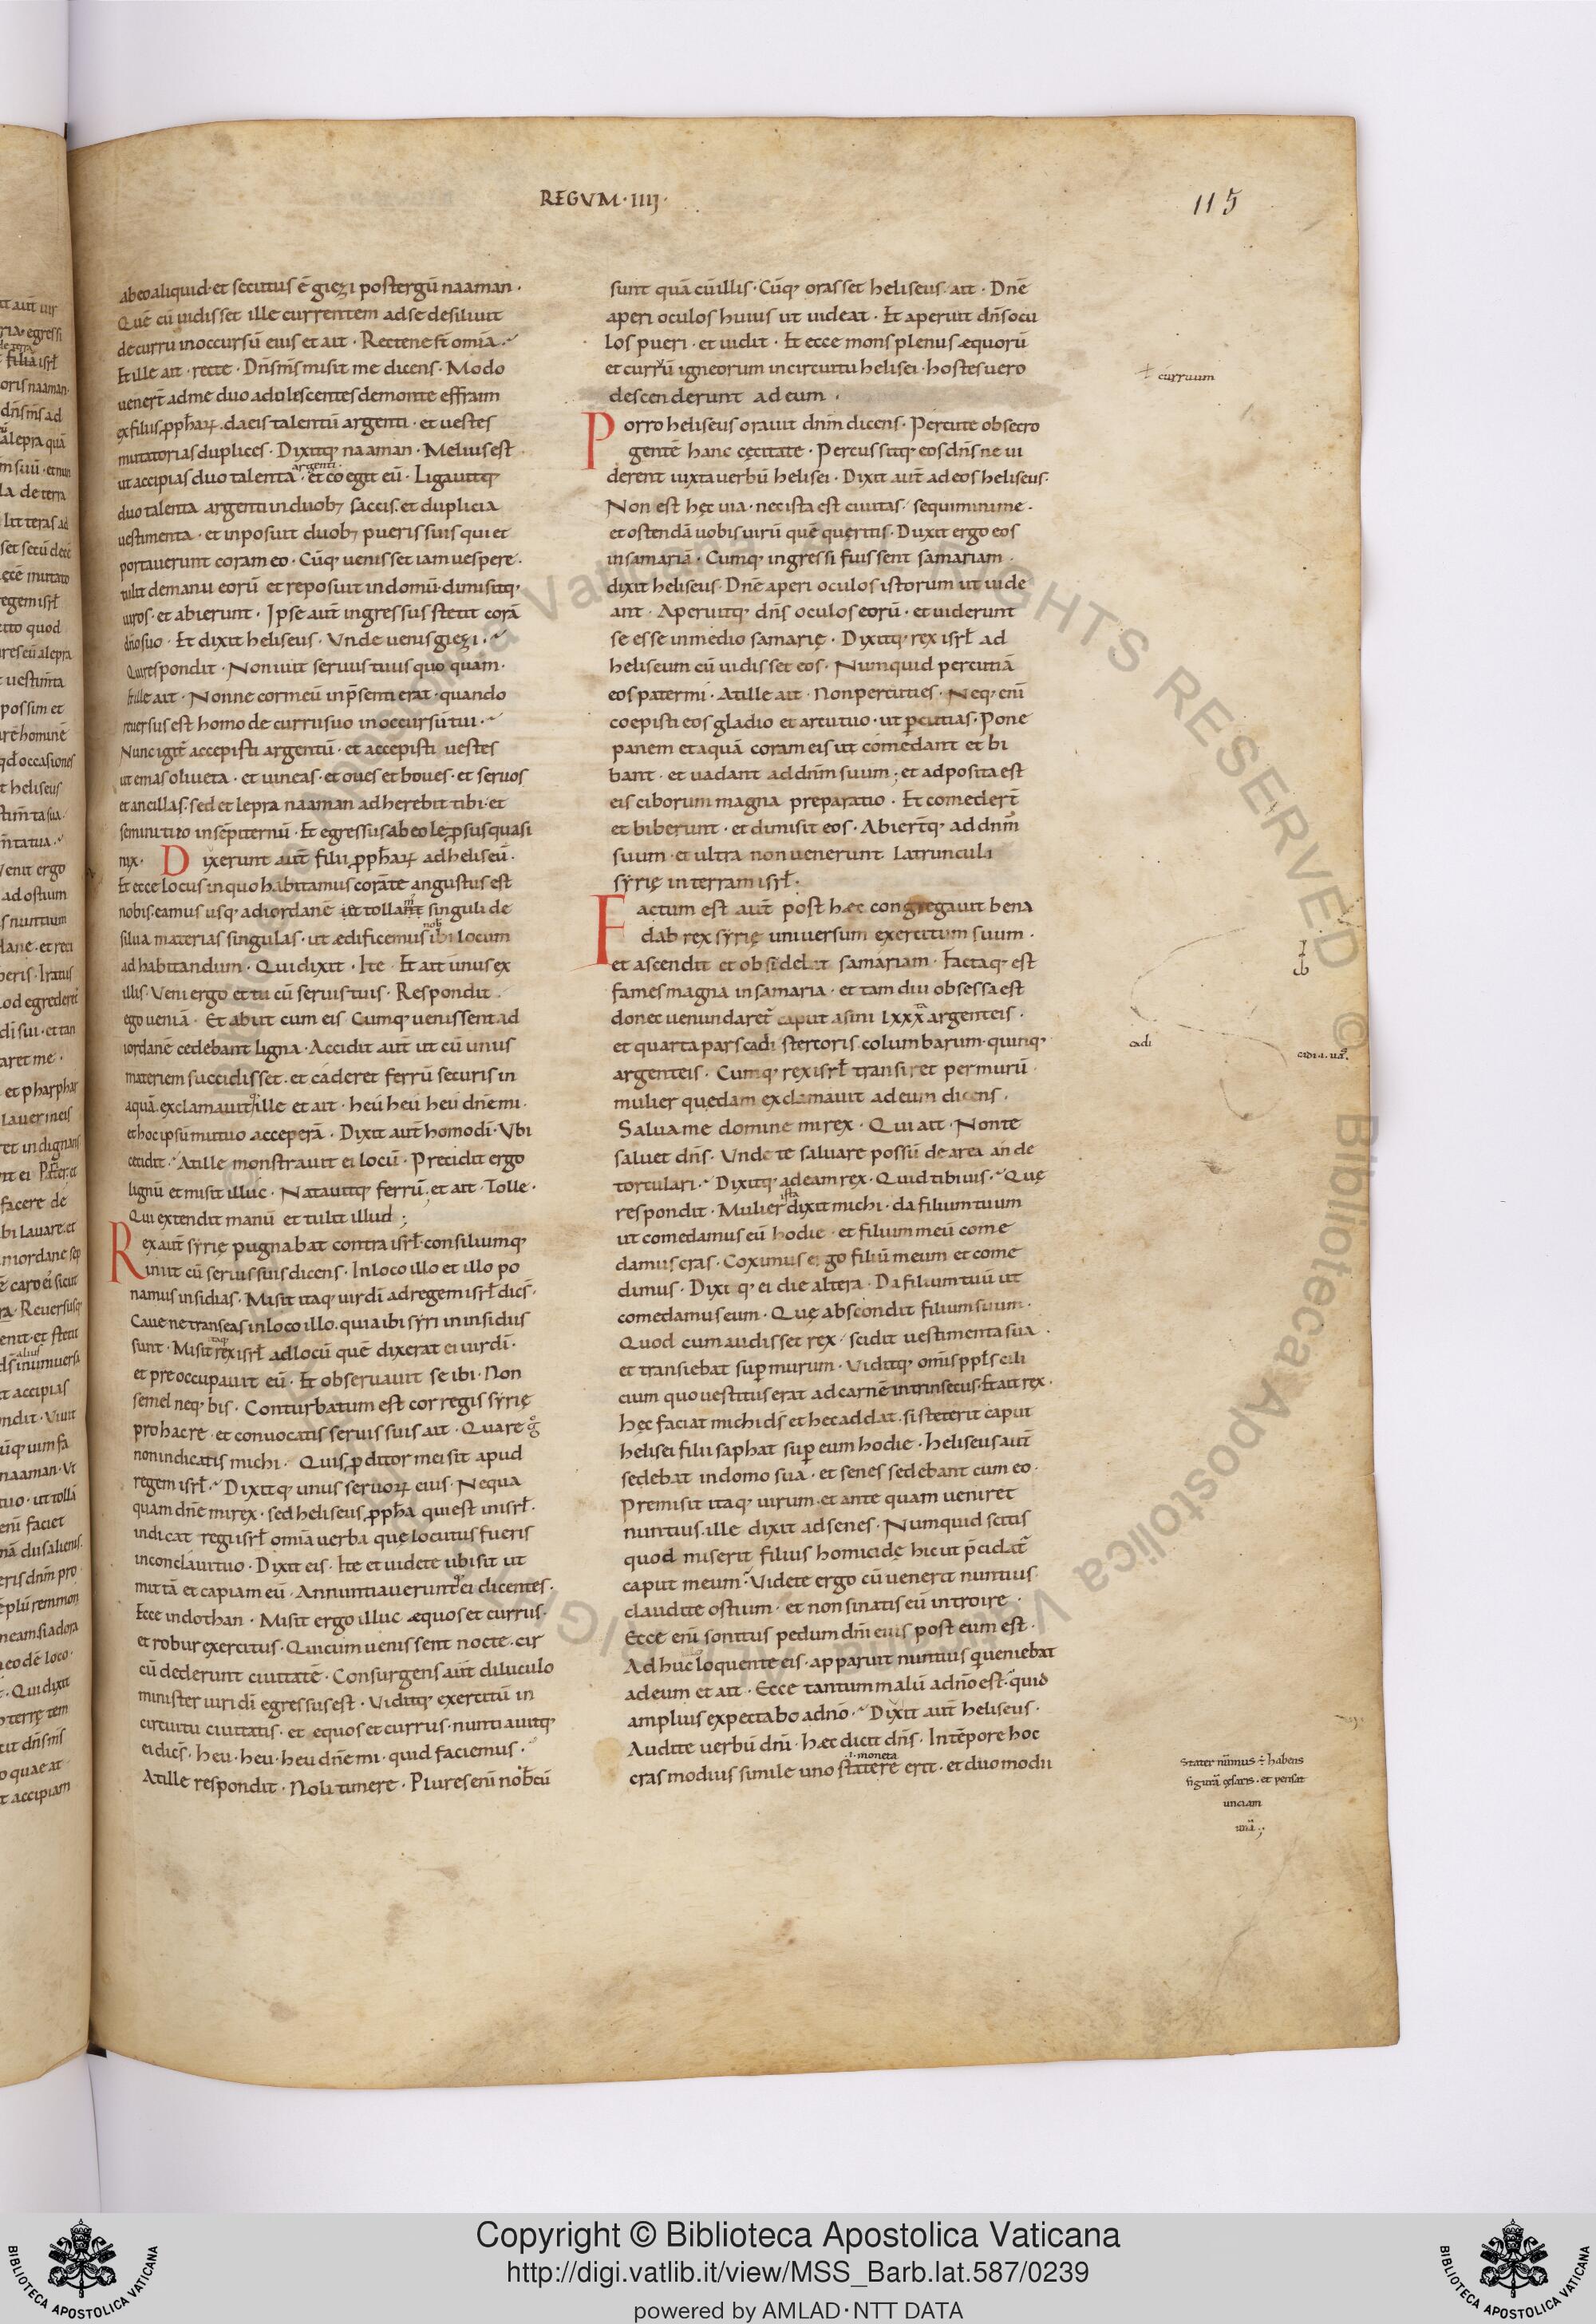 REGVM · IIIJ ·
115
ab eo aliquid · et secutus ē giezi post tergū naaman ·
Quē cū uidisset ille currentem ad se desiliuit
de curru in occursū eius et ait · Rectene st̄ omīa ·
Et ille ait · recte · Dn̄s ms̄ misit me dicens · Modo
uener̄t ad me duo adulescentes de monte effraim
ex filiis ꝓph̄aꝝ · da eis talentū argenti · et uestes
mutatorias duplices · Dixitq; naaman · Melius est
argenti ·
ut accipias duo talenta · et coegit eū · Ligauitq;
duo talenta argenti in duob; saccis · et duplicia
uestimenta · et inposuit duob; pueris suis qui et
portauerunt coram eo · Cūq; uenisset iam uespere ·
tulit de manu eorū et reposuit in domū · dimisitq;
uiros · et abierunt · Ipse aut̄ ingressus stetit corā
dn̄o suo · Et dixit heliseus · Vnde uenis giezi ·
Qui respondit · Non iuit seruus tuus quo quam ·
Et ille ait · Nonne cor meū in p̄senti erat · quando
reuersus est homo de curru suo in occursū tui ·
Nunc igit̄ accepisti argentū · et accepisti uestes
ut emas oliueta · et uineas · et oues et boues · et seruos
et ancillas · sed et lepra naaman adherebit tibi · et
semini tuo in sēpiternū · Et egressus ab eo lep̄sus quasi
nix · Dixerunt aut̄ filii ꝓph̄aꝝ ad heliseū ·
Et ecce locus in quo habitamus corā te angustus est
nobis · eamus usq; ad iordanē ut tollant singuli de
nob
silua materias singulas · ut ædificemus ibi locum
ad habitandum · Qui dixit · Ite · Et ait unus ex
illis · Veni ergo et tu cū seruis tuis · Respondit ·
ego ueniā · Et abiit cum eis · Cumq; uenissent ad
iordanē cedebant ligna · Accidit aut̄ ut cū unus
materiem succidisset · et caderet ferrū securis in
aquā · exclamauit ille et ait · heu heu heu dn̄e mi ·
et hoc ipsū mutuo acceperā · Dixit aut̄ homo dī · Vbi
cecidit · At ille monstrauit ei locū · Precidit ergo
lignū et misit illuc · Natauitq; ferrū · et ait · Tolle ·
Qui extendit manū et tulit illud ;
Rex aut̄ syrię pugnabat contra isrl̄ · consiliumq;
iniit cū seruis suis dicens · In loco illo et illo po
namus insidias · Misit itaq; uir dī ad regem isrl̄ dices̄ ·
Caue ne transeas in loco illo · quia ibi syri in insidiis
itaq;
sunt · Misit rex isrl̄ ad locū quē dixerat ei uir dī ·
et preoccupauit eū · Et obseruauit se ibi · Non
semel neq; bis · Conturbatum est cor regis syrię
pro hac re · et conuocatis seruis suis ait · Quare
non indicatis michi · Quis ꝓditor mei sit apud
regem isrl̄ · Dixitq; unus seruoꝝ eius · Nequa
quam dn̄e mi rex · sed heliseus ꝓph̄a qui est in isrl̄ ·
indicat regi isrl̄ omīa uerba quę locutus fueris
in conclaui tuo · Dixit eis · Ite et uidete ubi sit ut
mittā et capiam eū · Annuntiauerunt ei dicentes ·
Ecce in dothan · Misit ergo illuc æquos et currus ·
et robur exercitus · Qui cum uenissent nocte · cir
cū dederunt ciuitatē · Consurgens aut̄ diluculo
minister uiri dī egressus est · Viditq; exercitū in
circuitu ciuitatis · et equos et currus · nuntiauitq;
ei dicēs · heu · heu · heu dn̄e mi · quid faciemus ·
At ille respondit · Noli timere · Plures eni nob̄cū
sunt quā cū illis · Cūq; orasset heliseus · ait · Dn̄e
aperi oculos huius ut uideat · Et aperuit dn̄s ocu
los pueri · et uidit · Et ecce mons plenus æquorū
et currū igneorum in circuitu helisei · hostes uero
curruum
descenderunt ad eum ·
Porro heliseus orauit dn̄m dicens · Percute obsecro
gentē hanc cęcitate · Percussitq; eos dn̄s ne ui
derent iuxta uerbū helisei · Dixit aut̄ ad eos heliseus ·
Non est hęc uia · nec ista est ciuitas · sequimini me ·
et ostendā uobis uirū quē queritis · Duxit ergo eos
in samariā · Cumq; ingressi fuissent samariam ·
dixit heliseus · Dn̄e aperi oculos istorum ut uide
ant · Aperuitq; dn̄s oculos eorū · et uiderunt
se esse in medio samarię · Dixitq; rex isrl̄ ad
heliseum cū uidisset eos · Numquid percutiā
eos pater mi · At ille ait · Non percuties · Neq; eni
coepisti eos gladio et arcu tuo · ut p̄cutias · Pone
panem et aquā coram eis ut comedant et bi
bant · et uadant ad dn̄m suum ; et adposita est
eis ciborum magna preparatio · Et comeder̄t
et biberunt · et dimisit eos · Abiert̄q; ad dnm̄
suum · et ultra non uenerunt latrunculi
syrię in terram isrl̄ ·
Factum est aut̄ post hæc congregauit bena
dab rex syrię uniuersum exercitum suum ·
et ascendit et obsidebat samariam · Factaq; est
fames magna in samaria · et tam diu obsessa est
donec uenundaret̄ caput asini lxxx argenteis ·
et quarta pars cadi stercoris columbarum · quinq;
cadi
argenteis · Cumq; rex isrl̄ transiret per murū ·
mulier quedam exclamauit ad eum dicens ·
Salua me domine mi rex · Qui ait · Non te
saluet dn̄s · Vnde te saluare possū de area an de
torculari · Dixitq; ad eam rex · Quid tibi uis · Quę
ista
respondit · Mulier dixit michi · da filium tuum
ut comedamus eū hodie · et filium meū come
damus cras · Coximus ergo filiū meum et come
dimus · Dixiq; ei die altera · Da filium tuū ut
comedamus eum · Quę abscondit filium suum ·
Quod cum audisset rex · scidit uestimenta sua ·
et transiebat sup murum · Viditq; omīs ppl̄s cili
cium quo uestitus erat ad carnē intrinsecus · Et ait rex ·
Hęc faciat michi ds̄ et hec addat · si steterit caput
helisei filii saphat sup eum hodie · Heliseus aut̄
sedebat in domo sua · et senes sedebant cum eo ·
Premisit itaq; uirum · et ante quam ueniret
nuntius ille dixit ad senes · Numquid scitis
quod miserit filius homicidę hic ut p̄cidat̄
caput meum · Videte ergo cū uenerit nuntius
claudite ostium · et non sinatis eū introire ·
Ecce eni sonitus pedum dn̄i eius post eum est ·
Adhuc loquente eis · apparuit nuntius qui ueniebat
ad eum et ait · Ecce tantum malū a dn̄o est · quid
amplius expectabo a dn̄o · Dixit aut̄ heliseus ·
Audite uerbū dn̄i · Hæc dicit dn̄s · In tēpore hoc
.i. moneta
cras modius simile uno statere erit · et duo modii
Stater nūmus ÷ habens
figurā cęsaris · et pensat
unciam
unā ;
Copyright © Biblioteca Apostolica Vaticana
http://digi.vatlib.it/view/MSS_Barb.lat.587/0239
powered by AMLAD · NTT DATA
BIBLIOTECA APOSTOLICA VATICANA
BIBLIOTECA APOSTOLICA VATICANA